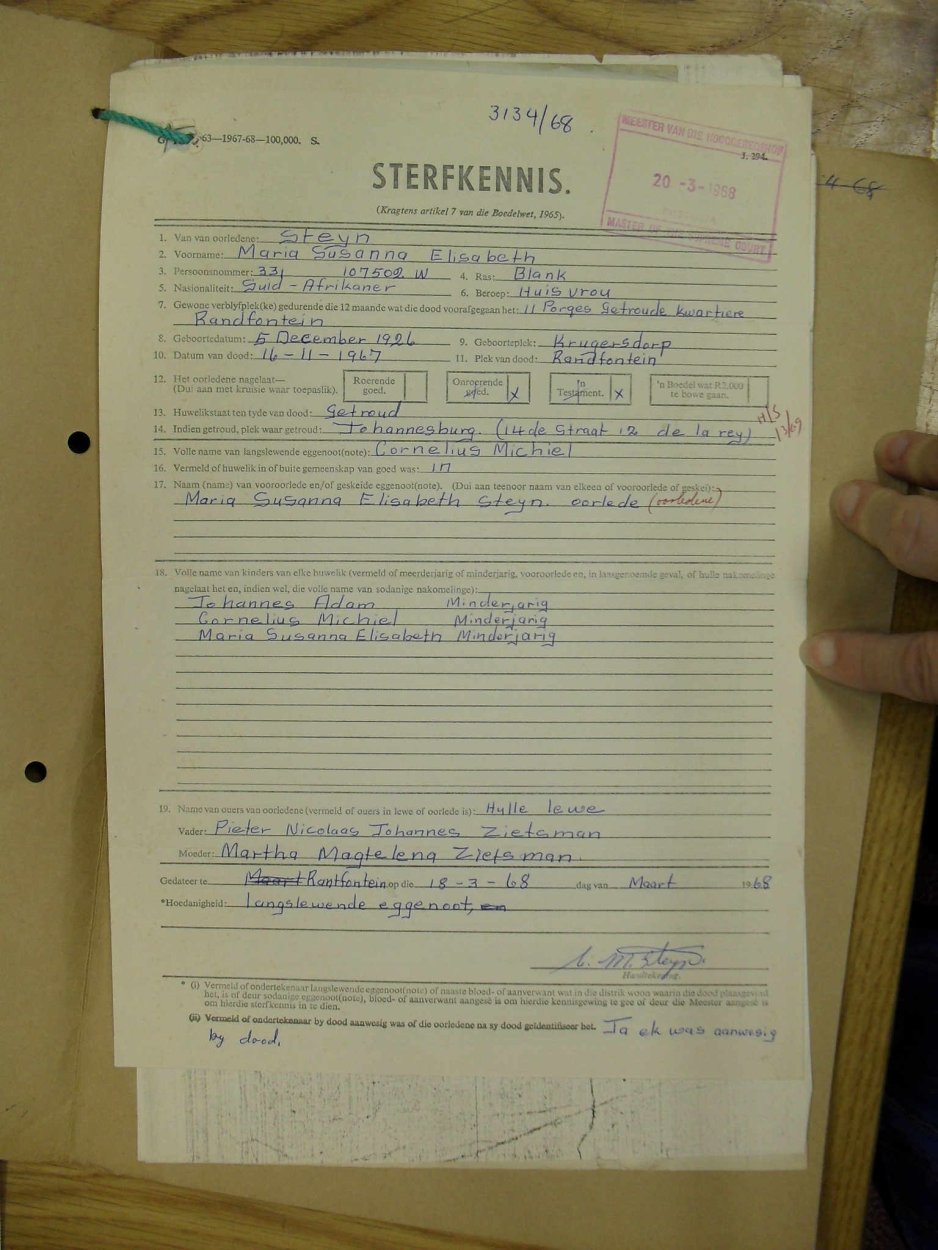 3134/68
63—1967-68—100,000. S.
J. 294.
MEESTER VAN DIE HOOGGEREGSHOF
20 -3- 1968
MASTER OF THE SUPREME COURT
4-68
STERFKENNIS.
(Kragtens artikel 7 van die Boedelwet, 1965).
1. Van van oorledene: Steyn
2. Voorname: Maria Susanna Elisabeth
3. Persoonsnommer: 331 107502 W 4. Ras: Blank
5. Nasionaliteit: Suid-Afrikaner 6. Beroep: Huisvrou
7. Gewone verblyfplek(ke) gedurende die 12 maande wat die dood voorafgegaan het: 11 Porges Getroude kwartiere
Randfontein
8. Geboortedatum: 5 December 1926 9. Geboorteplek: Krugersdorp
10. Datum van dood: 16-11-1967 11. Plek van dood: Randfontein
12. Het oorledene nagelaat— (Dui aan met kruisie waar toepaslik). Roerende goed. Onroerende goed. x 'n Testament. x 'n Boedel wat R2,000 te bowe gaan.
13. Huwelikstaat ten tyde van dood: Getroud
14. Indien getroud, plek waar getroud: Johannesburg. (14de Straat 12 de la rey)
15. Volle name van langslewende eggenoot(note): Cornelius Michiel
16. Vermeld of huwelik in of buite gemeenskap van goed was: in
17. Naam (name) van vooroorlede en/of geskeide eggenoot(note). (Dui aan teenoor naam van elkeen of vooroorlede of geskei):
Maria Susanna Elisabeth Steyn. oorlede (oorledene)
18. Volle name van kinders van elke huwelik (vermeld of meerderjarig of minderjarig, vooroorlede en, in lasgenoemde geval, of hulle nakomelinge
nagelaat het en, indien wel, die volle name van sodanige nakomelinge):
Johannes Adam Minderjarig
Cornelius Michiel Minderjarig
Maria Susanna Elisabeth Minderjarig
19. Name van ouers van oorledene (vermeld of ouers in lewe of oorlede is): Hylle lewe
Vader: Pieter Nicolaas Johannes Zietsman
Moeder: Martha Magtelena Zietsman.
Gedateer te Maart Rantfontein op die 18-3-68 dag van Maart 1968
*Hoedanigheid: langslewende eggenoot, en
C. M. Steyn.
Handtekening.
* (i) Vermeld of ondertekenaar langslewende eggenoot(note) of naaste bloed- of aanverwant wat in die distrik woon waarin die dood plaasgevind
het, is of deur sodanige eggenoot(note), bloed- of aanverwant aangesê is om hierdie kennisgewing te gee of deur die Meester aangesê is
om hierdie sterfkennis in te dien.
(ii) Vermeld of ondertekenaar by dood aanwesig was of die oorledene na sy dood geïdentifiseer het. Ja ek was aanwesig
by dood.